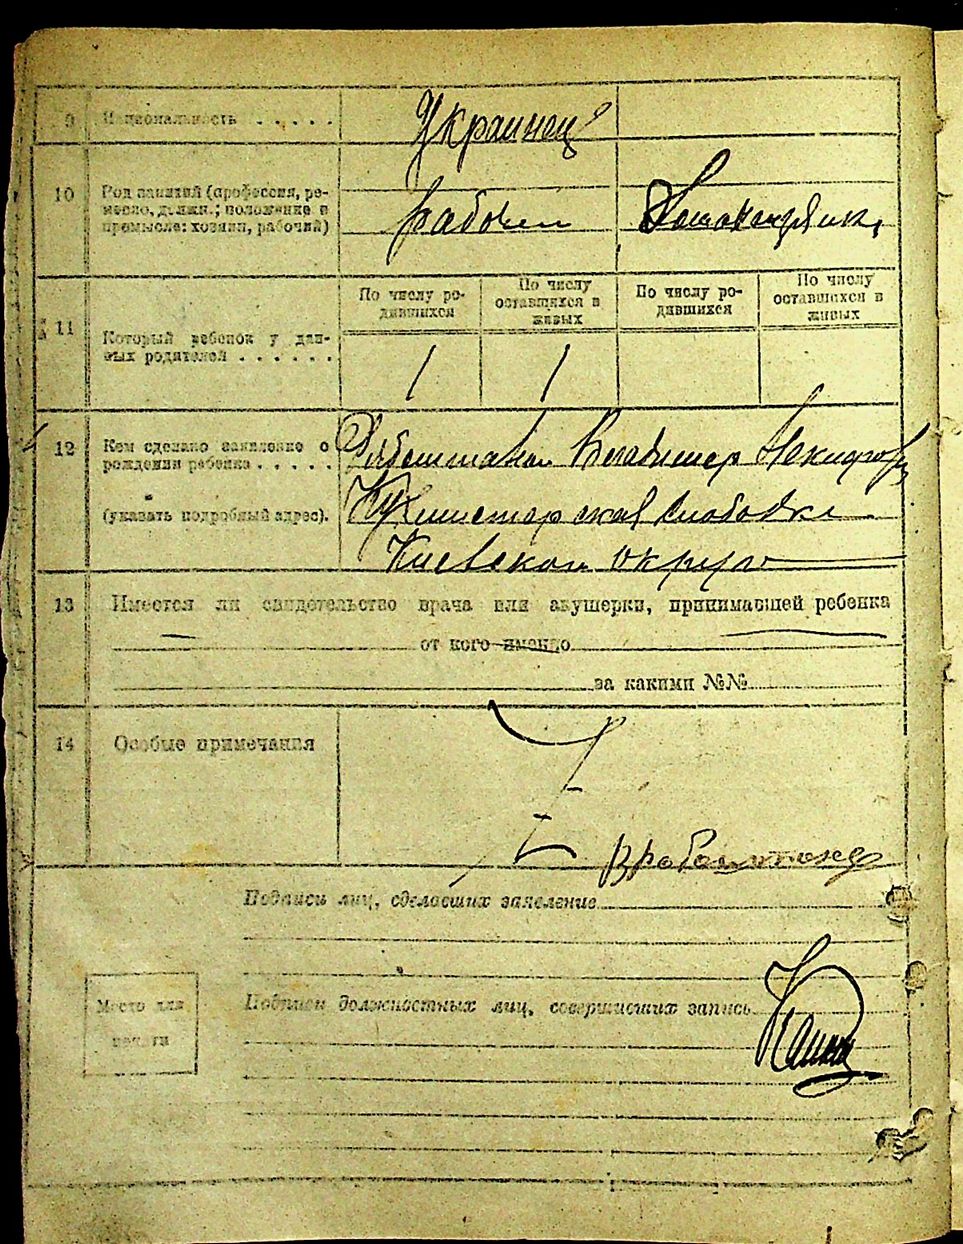 9 Национальность . . . . . Украинец
10 Род занятий (профессия, ре-
месло, должн.; положение в
промысле: хозяин, рабочий) рабочий Домохозяйка
11 Который ребенок у дан-
ных родителей . . . . . .
По числу ро-
дившихся
По числу
оставшихся в
живых
По числу ро-
дившихся
По числу
оставшихся в
живых
1 1
12 Кем сделано заявление о
рождении ребенка . . . . . Владимир
(указать подробный адрес). слободка
Киевской округи
13 Имеется ли свидетельство врача или акушерки, принимавшей ребенка
от кого именно
за какими №№
14 Особые примечания
Подписи лиц, сделавших заявление
Подписи должностных лиц, совершивших запись
Место для
печати